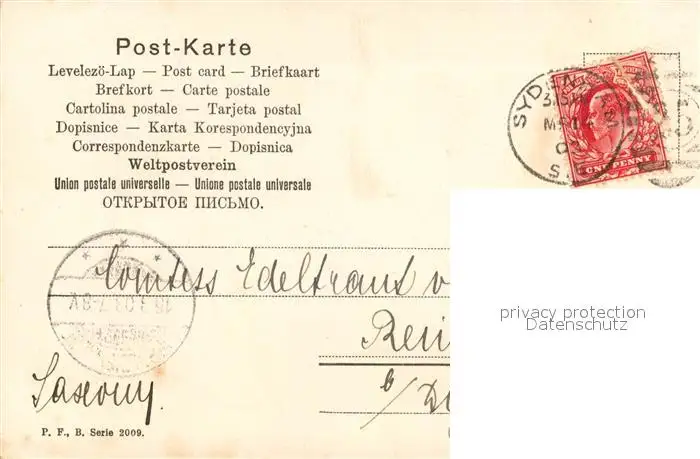 Post-Karte
Levelezö-Lap — Post card — Briefkaart
Brefkort — Carte postale
Cartolina postale — Tarjeta postal
Dopisnice — Karta Korespondencyjna
Correspondenzkarte — Dopisnica
Weltpostverein
Union postale universelle — Unione postale universale
ОТКРЫТОЕ ПИСЬМО.
SYDENHAM
ONE PENNY
Comtess Edeltraut v
privacy protection
Datenschutz
Saxony.
P. F., B. Serie 2009.